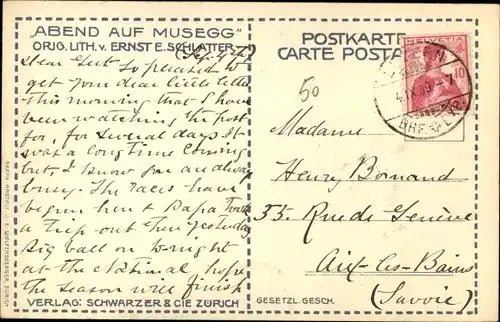 "ABEND AUF MUSEGG"
ORIG. LITH. v. ERNST E. SCHLATTER
Dear so pleased to
get your dear little letter
this morning that I have
been watching the post
for, for several days It
was a long time coming
but I know you are always
busy. The races have
begun here & Papa took
a trip out there yesterday
Big ball on to-night
at the National, hope
the season will finish
VERLAG: SCHWARZER & CIE ZÜRICH
POSTKARTE
CARTE POSTALE
HELVETIA
10
4.IX.09
50
Madame
Henry Bornand
35. Rue de Genève
Aix-les-Bains
(Savoie)
GESETZL. GESCH.